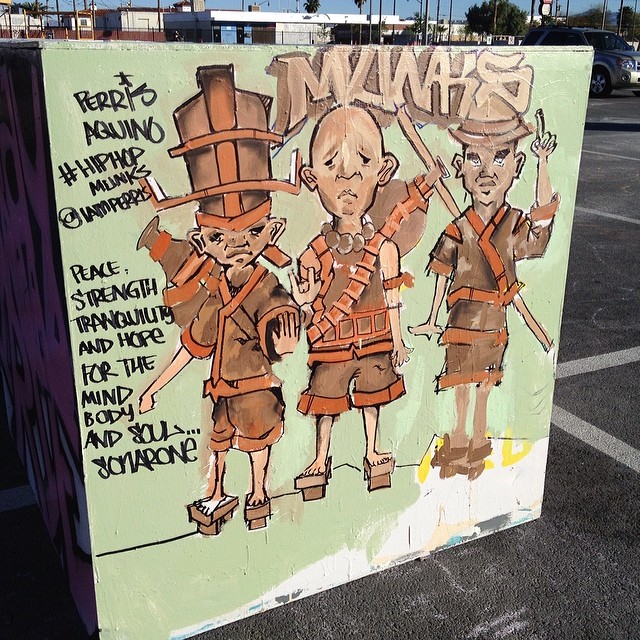 PERRIS
AQUINO
#HIPHOP
MUNKS
@IAMPERRIS
PEACE:
STRENGTH
TRANQUILITY
AND HOPE
FOR THE
MIND
BODY
AND SOUL...
SOMARONE
MUNKS